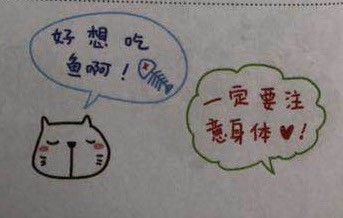 好想吃
鱼啊！
一定要注
意身体♥！